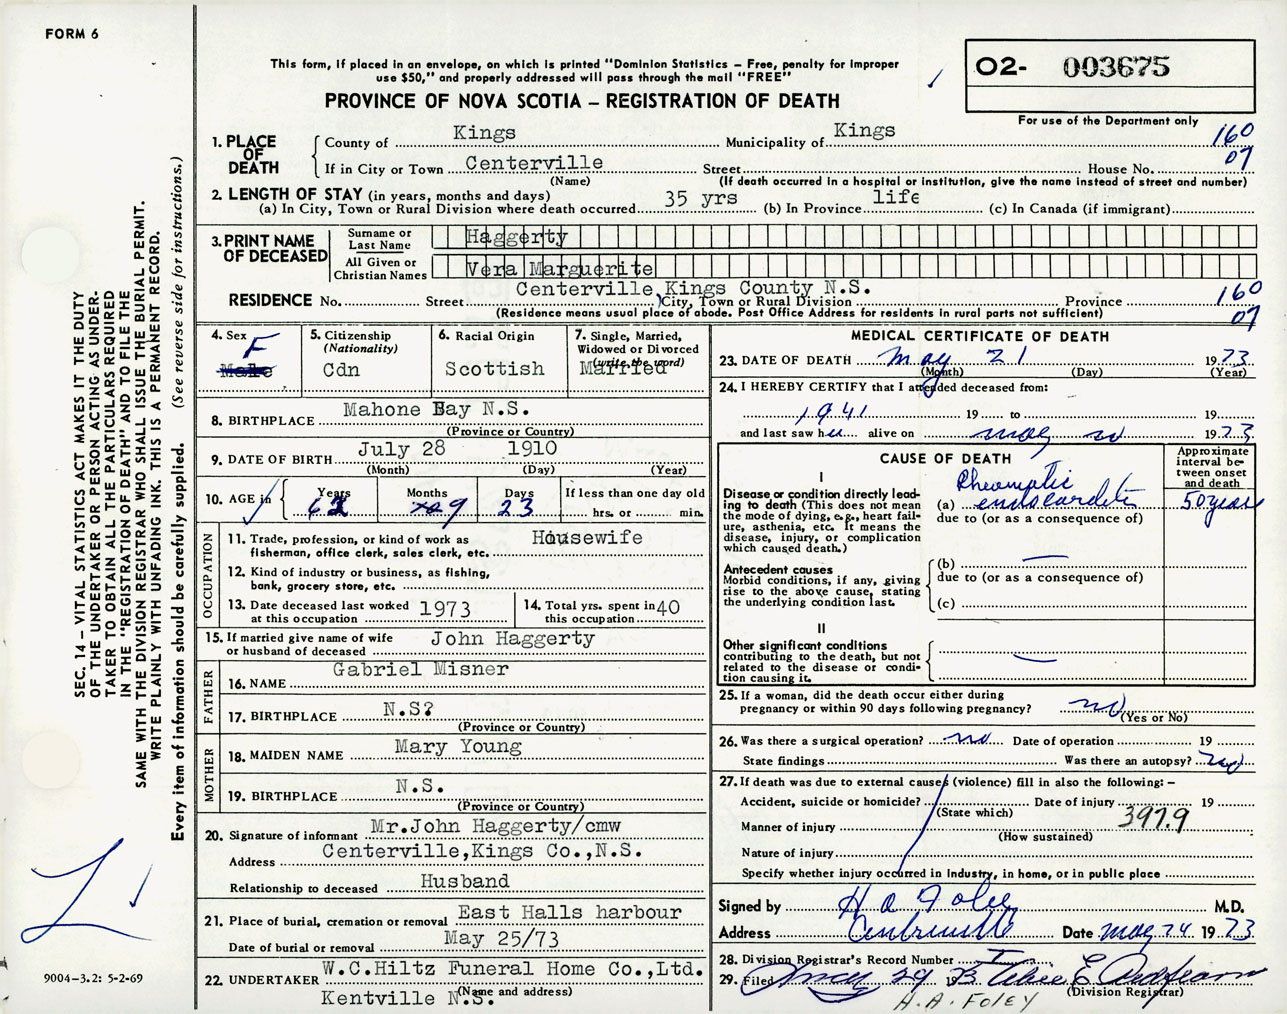 FORM 6
This form, if placed in an envelope, on which is printed "Dominion Statistics – Free, penalty for improper
use $50," and properly addressed will pass through the mail "FREE"
PROVINCE OF NOVA SCOTIA – REGISTRATION OF DEATH
02- 003675
For use of the Department only
1. PLACE OF DEATH
County of Kings Municipality of Kings 160
If in City or Town Centerville Street House No. 07
(Name) (If death occurred in a hospital or institution, give the name instead of street and number)
2. LENGTH OF STAY (in years, months and days)
(a) In City, Town or Rural Division where death occurred 35 yrs (b) In Province life (c) In Canada (if immigrant)
3. PRINT NAME OF DECEASED
Surname or Last Name Haggerty
All Given or Christian Names Vera Marguerite
Centerville, Kings County N.S.
RESIDENCE No. Street City, Town or Rural Division Province 160
(Residence means usual place of abode. Post Office Address for residents in rural parts not sufficient) 07
4. Sex F Male
5. Citizenship (Nationality) Cdn
6. Racial Origin Scottish
7. Single, Married, Widowed or Divorced (write the word) Married
8. BIRTHPLACE Mahone Bay N.S.
(Province or Country)
9. DATE OF BIRTH July 28 1910
(Month) (Day) (Year)
10. AGE in Years 62 Months 9 Days 23 If less than one day old
hrs. or min.
OCCUPATION
11. Trade, profession, or kind of work as fisherman, office clerk, sales clerk, etc. Housewife
12. Kind of industry or business, as fishing, bank, grocery store, etc.
13. Date deceased last worked at this occupation 1973
14. Total yrs. spent in this occupation 40
15. If married give name of wife or husband of deceased John Haggerty
FATHER
16. NAME Gabriel Misner
17. BIRTHPLACE N.S?
(Province or Country)
MOTHER
18. MAIDEN NAME Mary Young
19. BIRTHPLACE N.S.
(Province or Country)
20. Signature of informant Mr.John Haggerty/cmw
Address Centerville,Kings Co.,N.S.
Relationship to deceased Husband
21. Place of burial, cremation or removal East Halls harbour
Date of burial or removal May 25/73
22. UNDERTAKER W.C.Hiltz Funeral Home Co.,Ltd.
(Name and address)
Kentville N.S.
MEDICAL CERTIFICATE OF DEATH
23. DATE OF DEATH May 21 1973
(Month) (Day) (Year)
24. I HEREBY CERTIFY that I attended deceased from:
1941 19 to 19
and last saw her alive on May 1973
CAUSE OF DEATH
Approximate interval between onset and death
I
Disease or condition directly lead-
ing to death (This does not mean
the mode of dying, e.g., heart fail-
ure, asthenia, etc. It means the
disease, injury, or complication
which caused death.)
(a) Rheumatic endocarditis 50 years
due to (or as a consequence of)
Antecedent causes
Morbid conditions, if any, giving
rise to the above cause, stating
the underlying condition last.
(b)
due to (or as a consequence of)
(c)
II
Other significant conditions
contributing to the death, but not
related to the disease or condi-
tion causing it.
25. If a woman, did the death occur either during
pregnancy or within 90 days following pregnancy? no
(Yes or No)
26. Was there a surgical operation? no Date of operation 19
State findings Was there an autopsy? no
27. If death was due to external causes (violence) fill in also the following: –
Accident, suicide or homicide? Date of injury 19
(State which) 397.9
Manner of injury
(How sustained)
Nature of injury
Specify whether injury occurred in Industry, in home, or in public place
Signed by H A Foley M.D.
Address Centreville Date May 24 1973
28. Division Registrar's Record Number
29. Filed May 29 19
(Division Registrar)
H.A. FOLEY
SEC. 14 – VITAL STATISTICS ACT MAKES IT THE DUTY
OF THE UNDERTAKER OR PERSON ACTING AS UNDER-
TAKER TO OBTAIN ALL THE PARTICULARS REQUIRED
IN THE "REGISTRATION OF DEATH" AND TO FILE THE
SAME WITH THE DIVISION REGISTRAR WHO SHALL ISSUE THE BURIAL PERMIT.
WRITE PLAINLY WITH UNFADING INK. THIS IS A PERMANENT RECORD.
Every item of information should be carefully supplied. (See reverse side for instructions.)
9004-3.2: 5-2-69